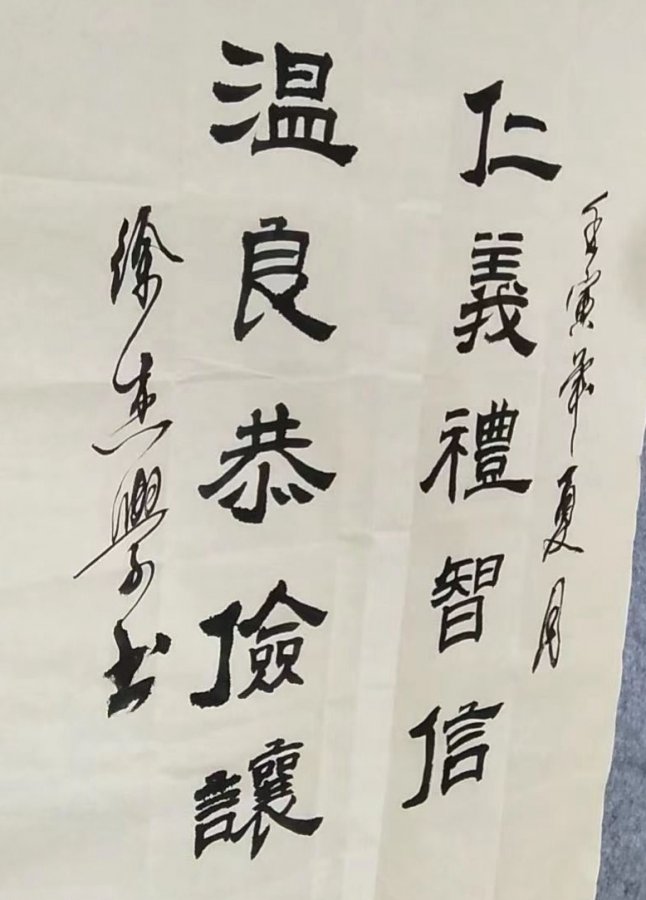 壬寅年夏月
仁義禮智信
温良恭儉讓
徐杰學书